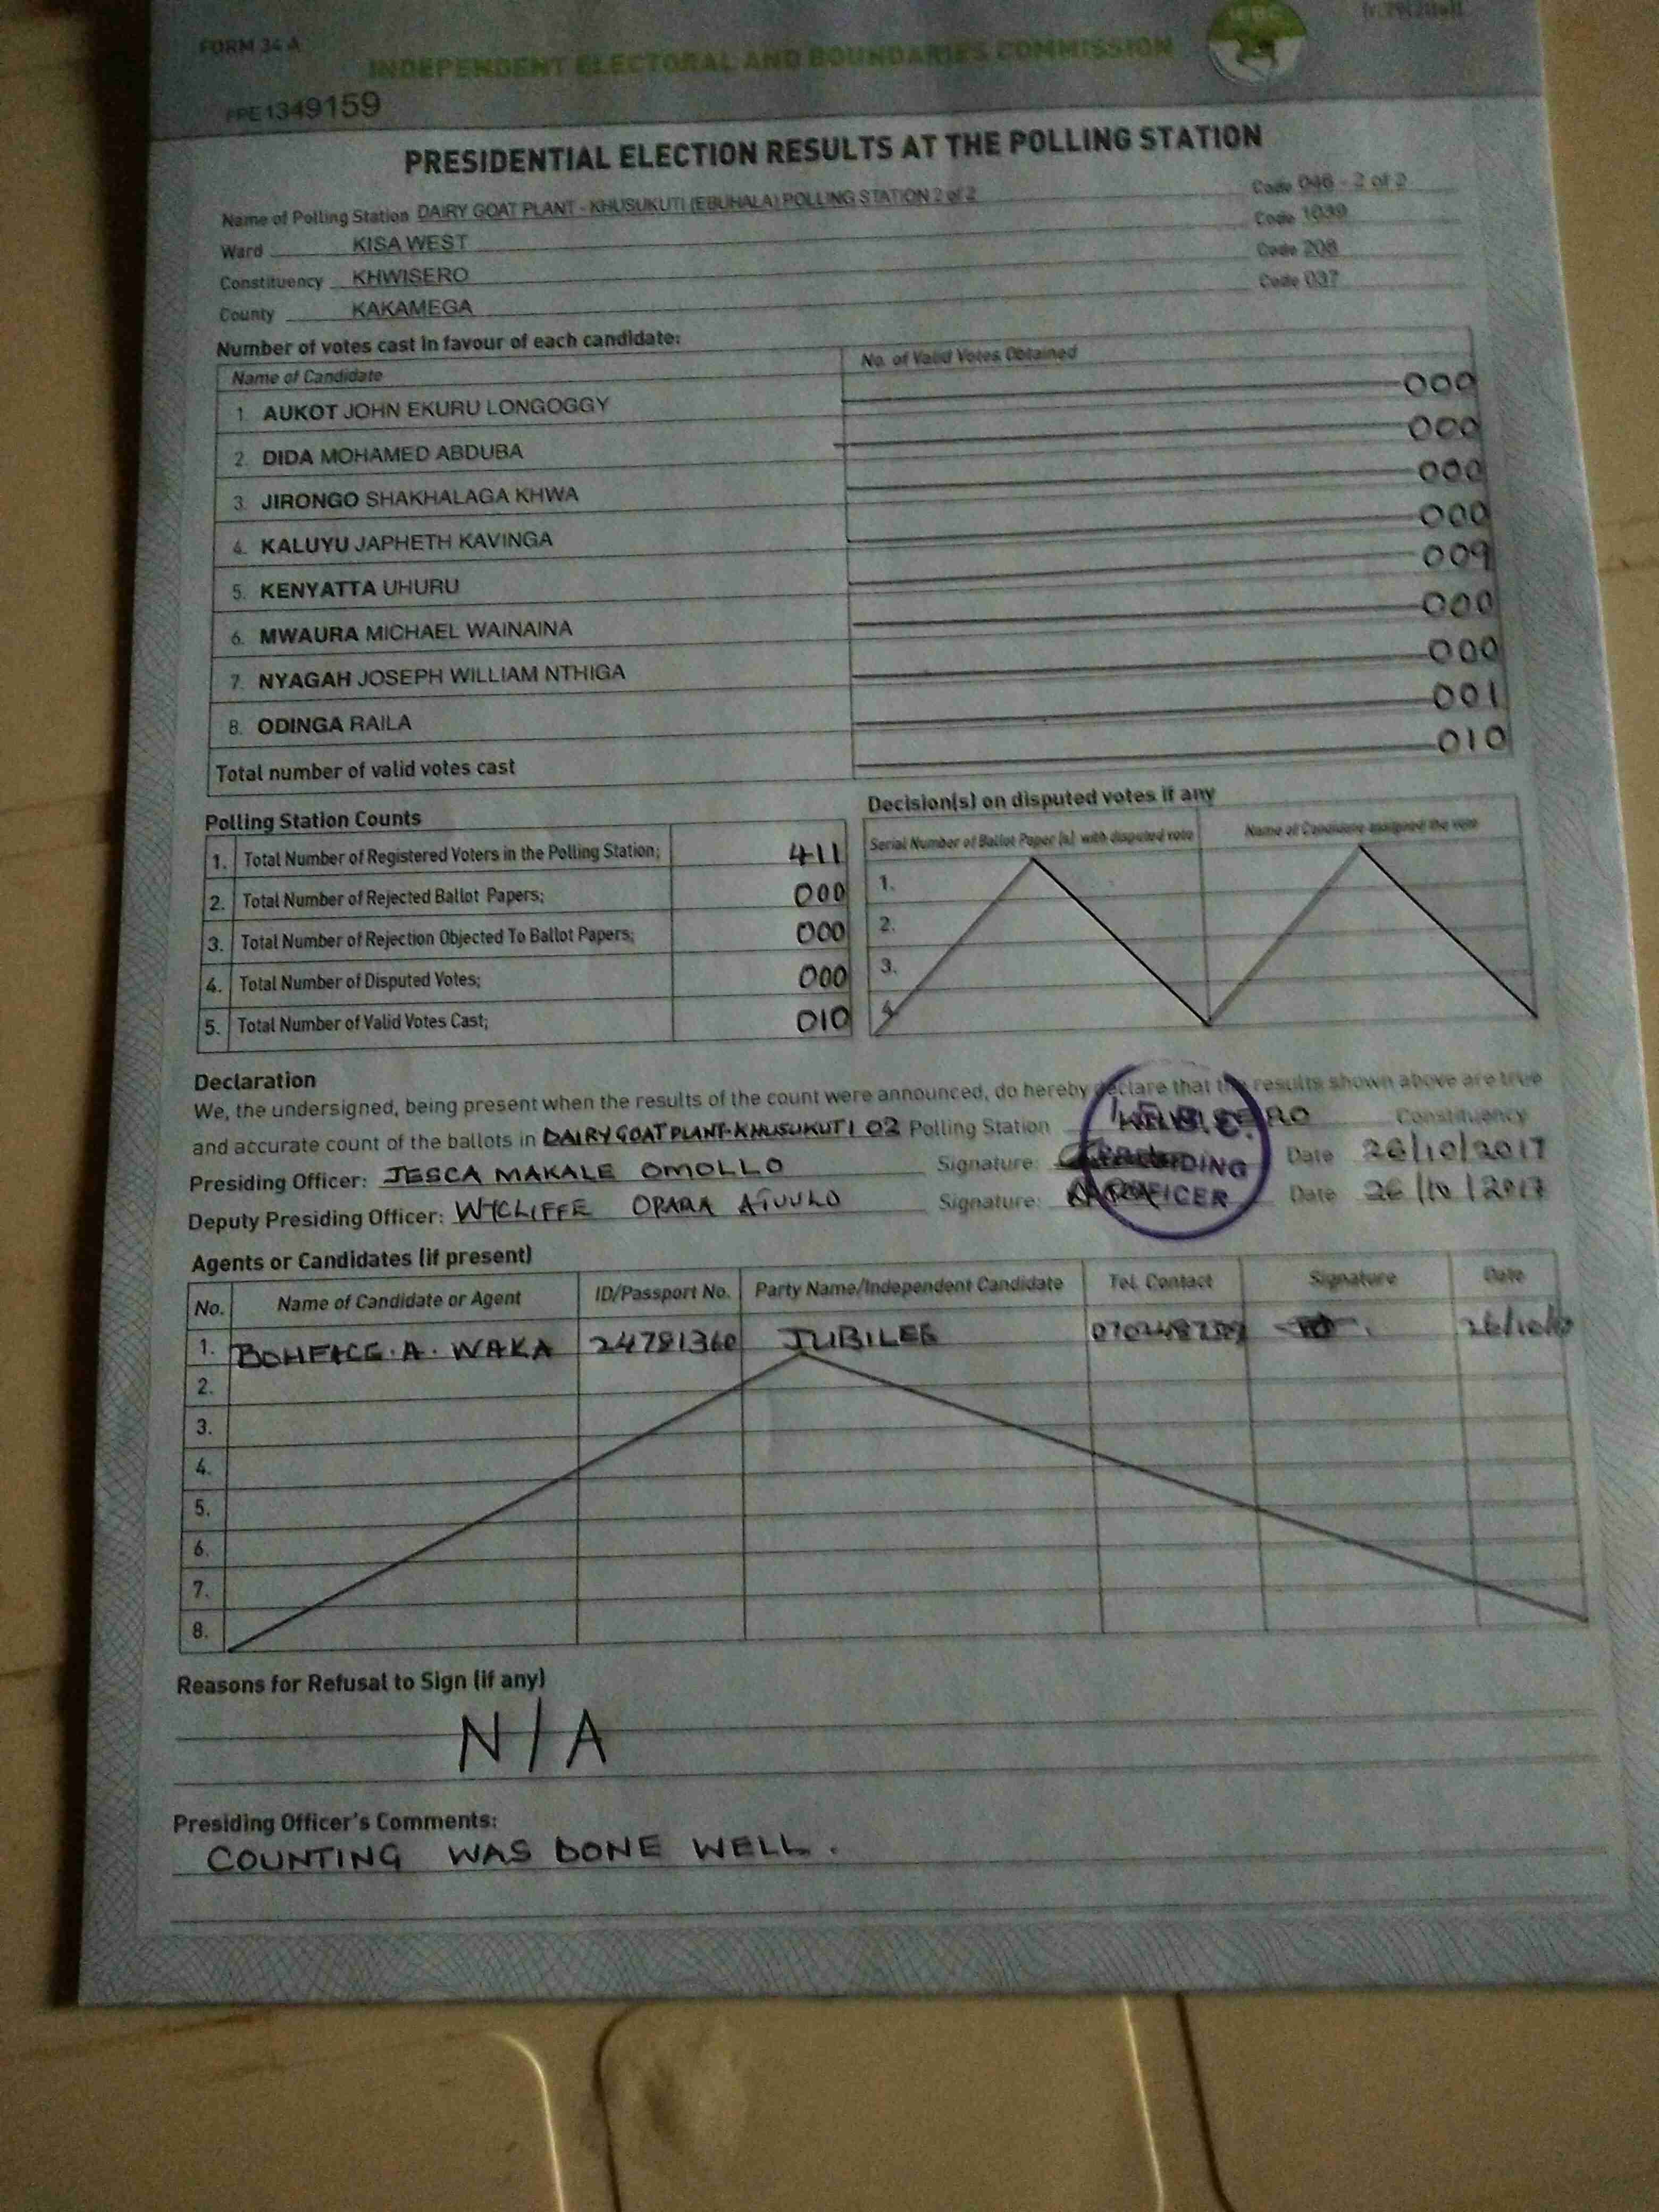 FORM 34 A
INDEPENDENT ELECTORAL AND BOUNDARIES COMMISSION
PPE1349159
PRESIDENTIAL ELECTION RESULTS AT THE POLLING STATION
Name of Polling Station DAIRY GOAT PLANT - KHUSUKUTI (EBUHALA) POLLING STATION 2 of 2 Code 046 - 2 of 2
Ward KISA WEST Code 1039
Constituency KHWISERO Code 208
County KAKAMEGA Code 037
Number of votes cast in favour of each candidate:
Name of Candidate No. of Valid Votes Obtained
1. AUKOT JOHN EKURU LONGOGGY 000
2. DIDA MOHAMED ABDUBA 000
3. JIRONGO SHAKHALAGA KHWA 000
4. KALUYU JAPHETH KAVINGA 000
5. KENYATTA UHURU 009
6. MWAURA MICHAEL WAINAINA 000
7. NYAGAH JOSEPH WILLIAM NTHIGA 000
8. ODINGA RAILA 001
Total number of valid votes cast 010
Polling Station Counts
1. Total Number of Registered Voters in the Polling Station; 411
2. Total Number of Rejected Ballot Papers; 000
3. Total Number of Rejection Objected To Ballot Papers; 000
4. Total Number of Disputed Votes; 000
5. Total Number of Valid Votes Cast; 010
Decision(s) on disputed votes if any
Serial Number of Ballot Paper (s) with disputed vote Name of Candidate assigned the vote
1.
2.
3.
4.
Declaration
We, the undersigned, being present when the results of the count were announced, do hereby declare that the results shown above are true
and accurate count of the ballots in DAIRY GOAT PLANT-KHUSUKUTI 02 Polling Station KHWISERO Constituency
Presiding Officer: JESCA MAKALE OMOLLO Signature: Date 26/10/2017
Deputy Presiding Officer: WYCLIFFE OPARA Signature: Date 26/10/2017
I.E.B.C.
PRESIDING
OFFICER
Agents or Candidates (if present)
No. Name of Candidate or Agent ID/Passport No. Party Name/Independent Candidate Tel. Contact Signature Date
1. BONFACE. A. WAKA 24781360 JUBILEE
2.
3.
4.
5.
6.
7.
8.
Reasons for Refusal to Sign (if any)
N/A
Presiding Officer's Comments:
COUNTING WAS DONE WELL.